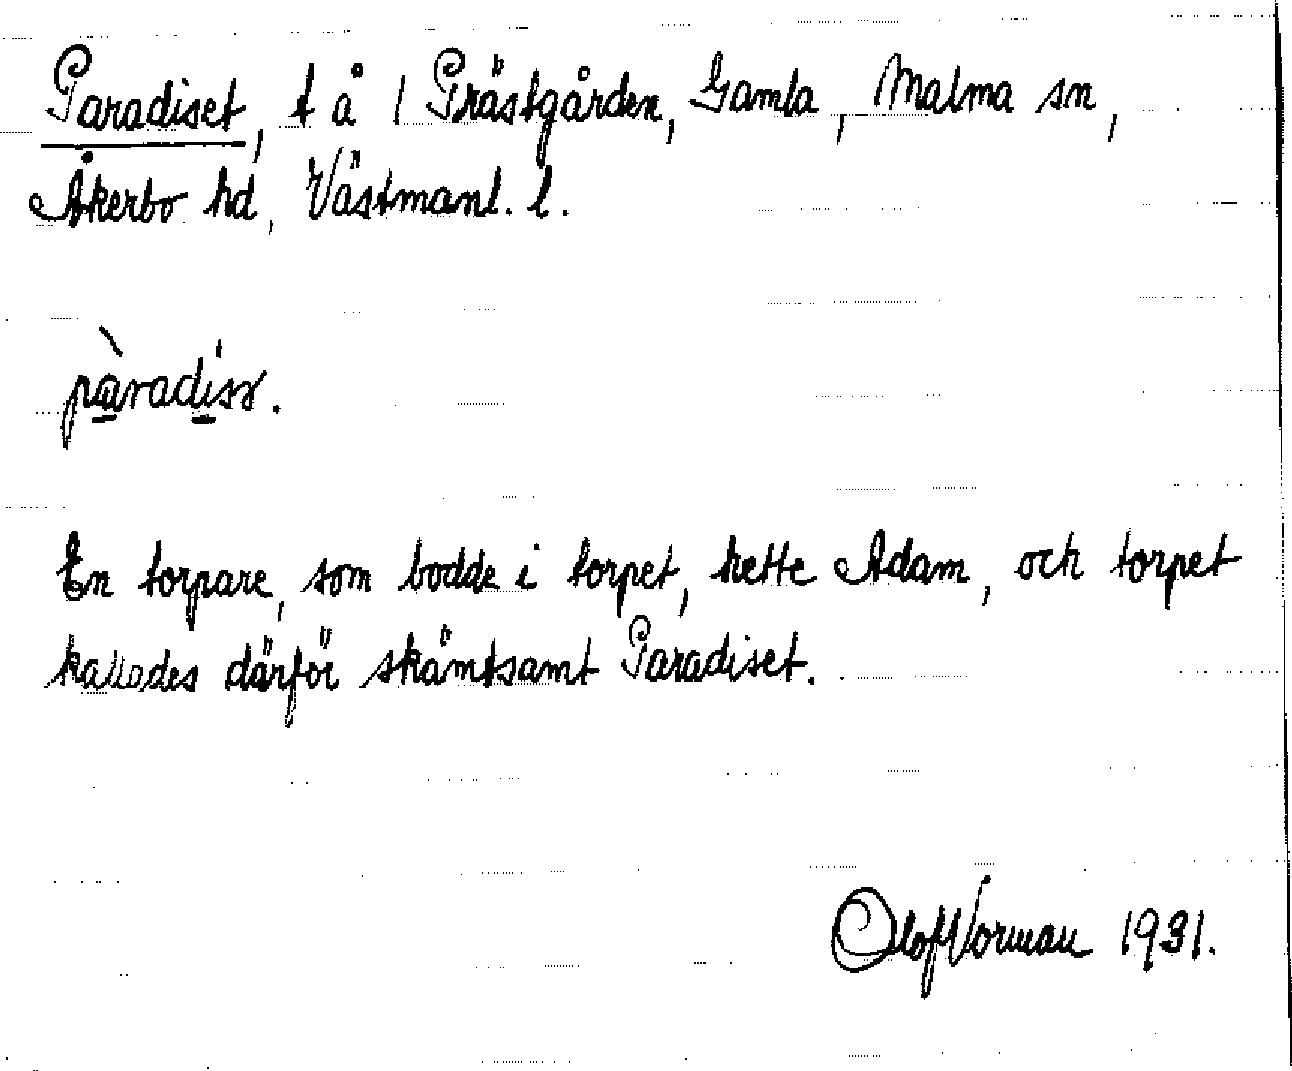 Paradiset, t å 1 Prästgården, Gamla, Malma sn,
Åkerbo hd, Västmanl. l.
pàradíss.
En torpare, som bodde i torpet, hette Adam, och torpet
kallades därför skämtsamt Paradiset.
Olof Norman 1931.